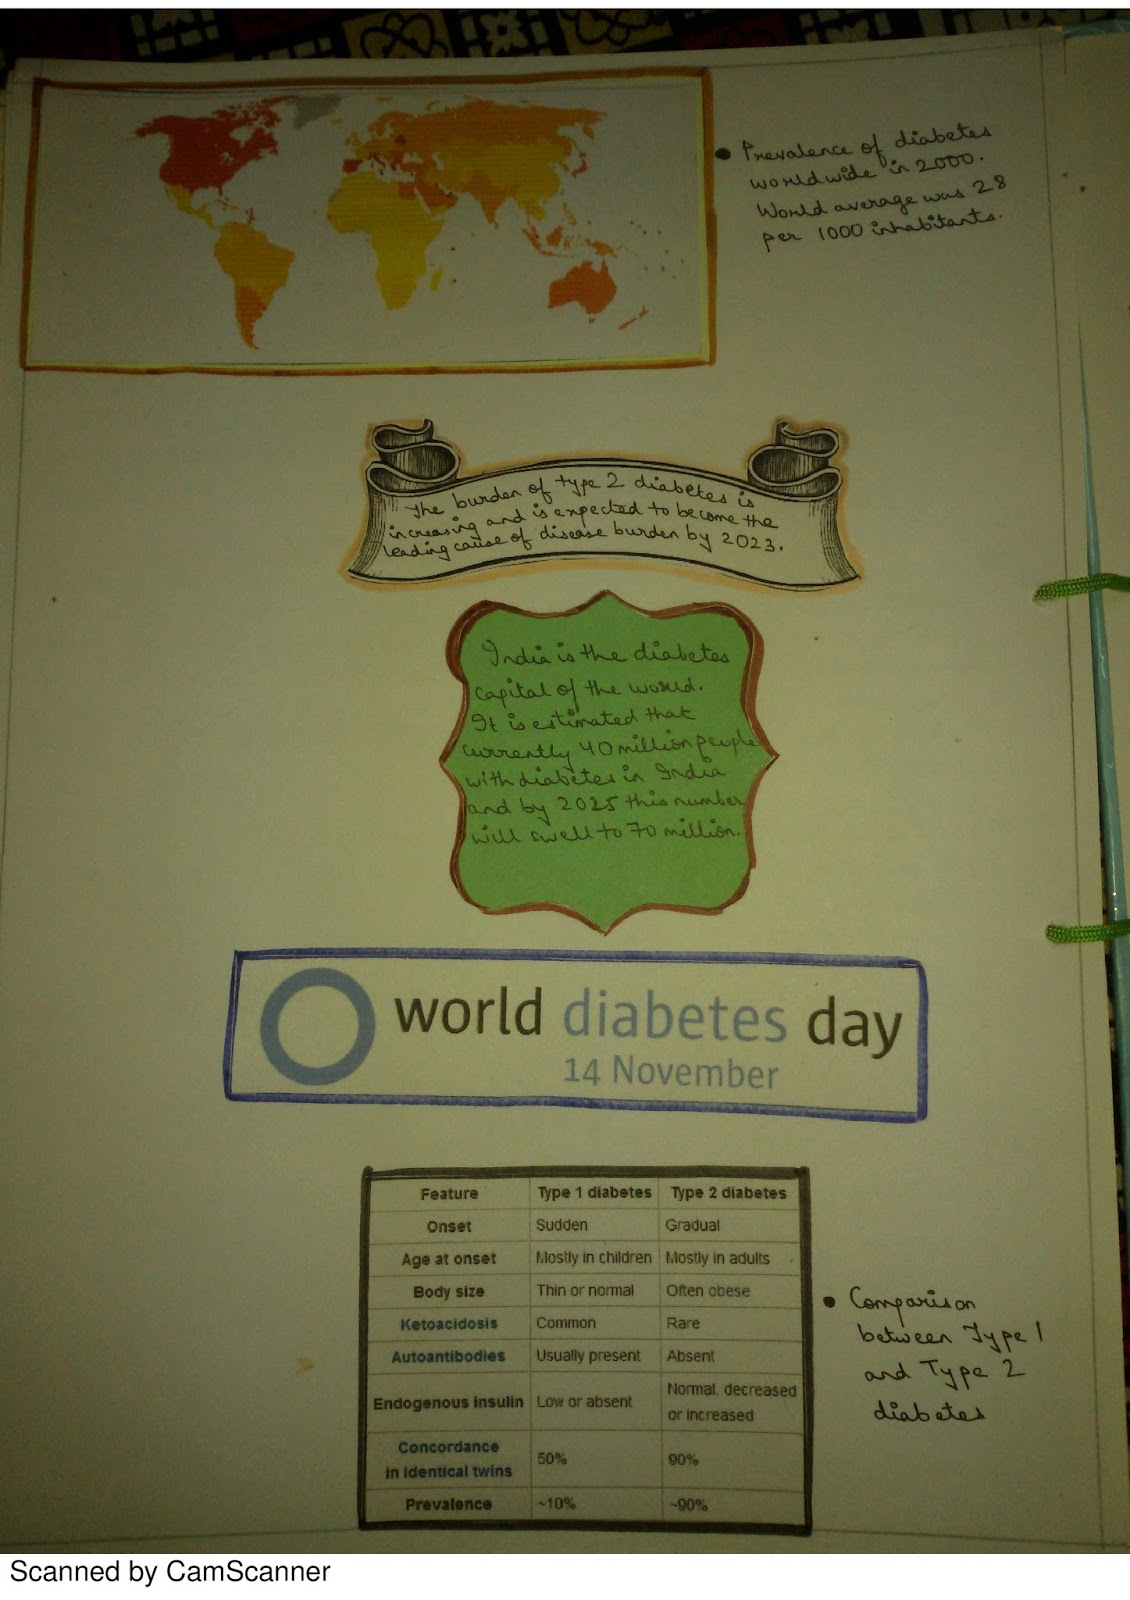 • Prevalence of diabetes
worldwide in 2000.
World average was 28
per 1000 inhabitants.
The burden of type 2 diabetes is
increasing and is expected to become the
leading cause of disease burden by 2023.
India is the diabetes
capital of the world.
It is estimated that
currently 40 million people
with diabetes in India
and by 2025 this number
will swell to 70 million.
world diabetes day
14 November
Feature Type 1 diabetes Type 2 diabetes
Onset Sudden Gradual
Age at onset Mostly in children Mostly in adults
Body size Thin or normal Often obese
Ketoacidosis Common Rare
Autoantibodies Usually present Absent
Endogenous insulin Low or absent Normal, decreased
or increased
Concordance
in identical twins 50% 90%
Prevalence ~10% ~90%
• Comparison
between Type 1
and Type 2
diabetes
Scanned by CamScanner